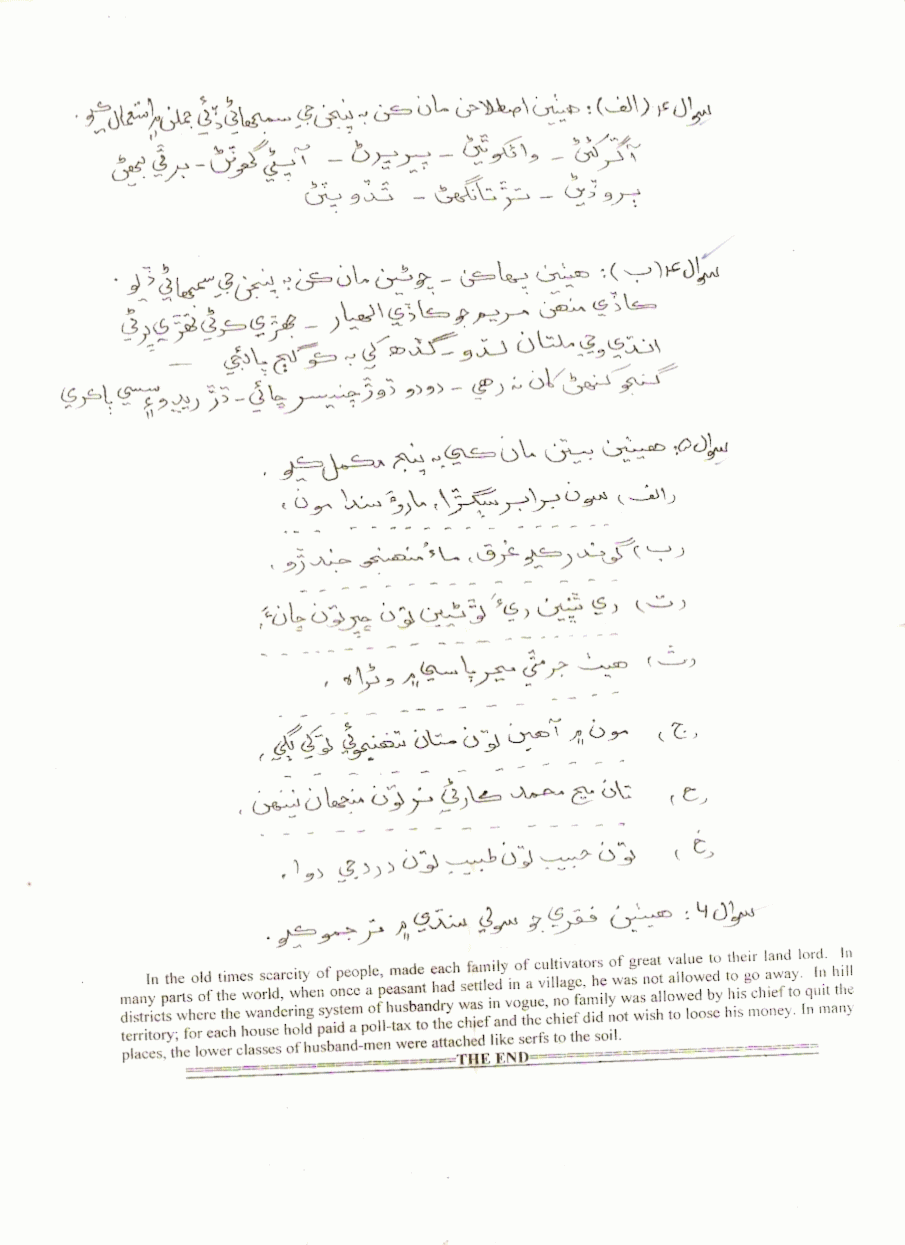 سوال ۴ (الف): هيٺين اصطلاحن مان کن به پنجن جي سمجهاڻي ڏئي جملن ۾ استعمال ڪريو.
آڱر کڻڻ - وائکو ٿيڻ - پير ڀرڻ - آپيٽي گهوٽڻ - برقي ٻجهڻ
ٻروڏيڻ - تڙ تانگهڻ - ٿڏو پٽڻ
سوال ۴ (ب): هيٺين پهاکن - چوڻين مان کن به پنجن جي سمجهاڻي ڏيو.
ڪاڏي منهن مريم جو ڪاڏي الهيار - جهڙي ڪوٺي تهڙي
انڌي وڃي ملتان لڌو - گڏهه کي به کو گيج پائي -
گنجو کنهڻ کان نه رهي - دودو ڌوڙ چنيسر ڇائي - ڌڙ ريڍ ۽ سسي ٻاڪري
سوال ۵: هيٺين بيتن مان ڪي به پنج مڪمل ڪريو.
(الف) سون برابر سڳڙا، مارو سندا مون،
(ب) گوندر ڪيو غرق، ماءُ منهنجو جندڙو،
(ت) ري ڀتين ريءَ لوٺيين تون ڇپر تون ڇانءَ،
(ث) هيٺ جر مٿي مڃر پاسي ۾ وڻراه،
(ج) مون ۾ آهين تون متان تنهنجوئي توکي لڳي،
(ح) تان مڃ محمد ڪارڻي نر تون منجهان نينهن،
(خ) تون حبيب تون طبيب تون درد جي دوا.
سوال ۶: هيٺين فقري جو سولي سنڌي ۾ ترجمو ڪريو.
In the old times scarcity of people, made each family of cultivators of great value to their land lord. In
many parts of the world, when once a peasant had settled in a village, he was not allowed to go away. In hill
districts where the wandering system of husbandry was in vogue, no family was allowed by his chief to quit the
territory; for each house hold paid a poll-tax to the chief and the chief did not wish to loose his money. In many
places, the lower classes of husband-men were attached like serfs to the soil.
THE END